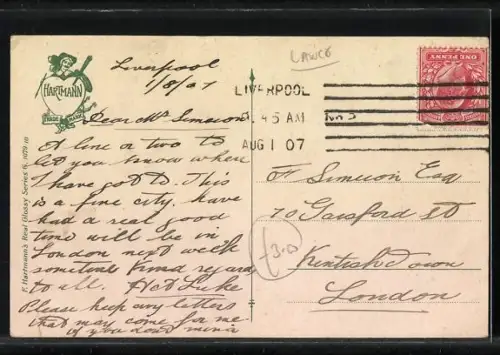 LANCS
HARTMANN
TRADE MARK
F. Hartmann's Real Glossy Series G.
Liverpool
1/8/07
Dear Mr Simeson
A line or two to
let you know where
I have got to. This
is a fine city, have
had a real good
time will be in
London next week
sometime Kind regards
to all.
Please keep any letters
that may come for me
if you dont mind
LIVERPOOL
.45 AM
AUG 1 07
ONE PENNY
Simeson Esq
70 Gaisford St
Kentish Town
London